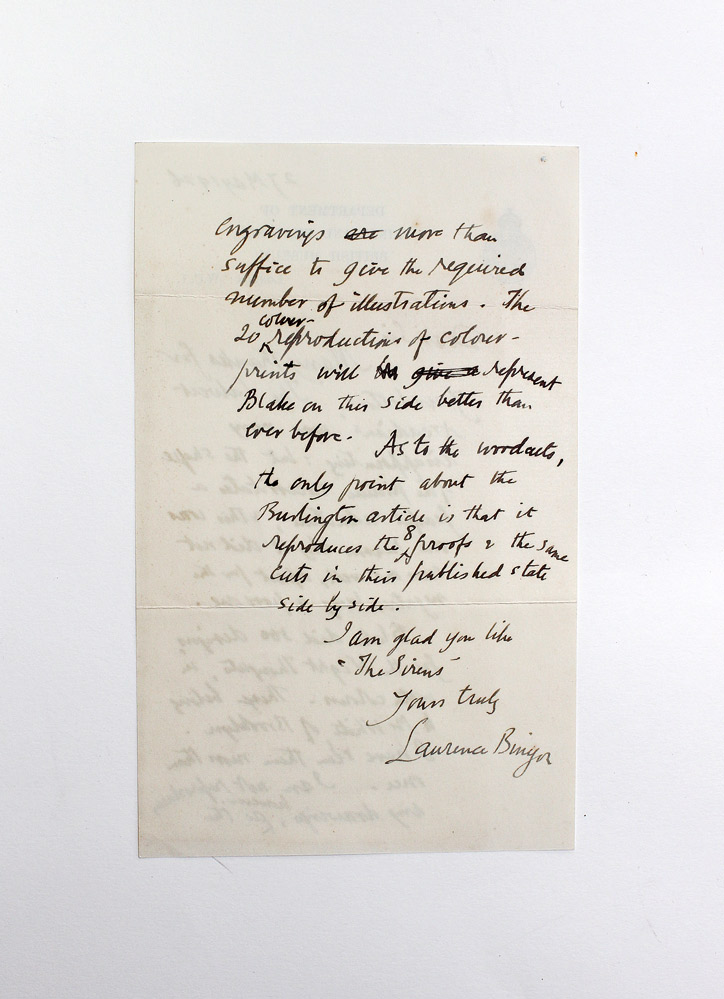 engravings are more than
suffice to give the required
number of illustrations. The
20 colour-reproductions of colour-
prints will be give a represent
Blake on this side better than
ever before. As to the woodcuts,
the only point about the
Burlington article is that it
reproduces the 8 proofs & the same
cuts in their published state
side by side.
I am glad you like
"The Sirens"
Yours truly
Laurence Binyon